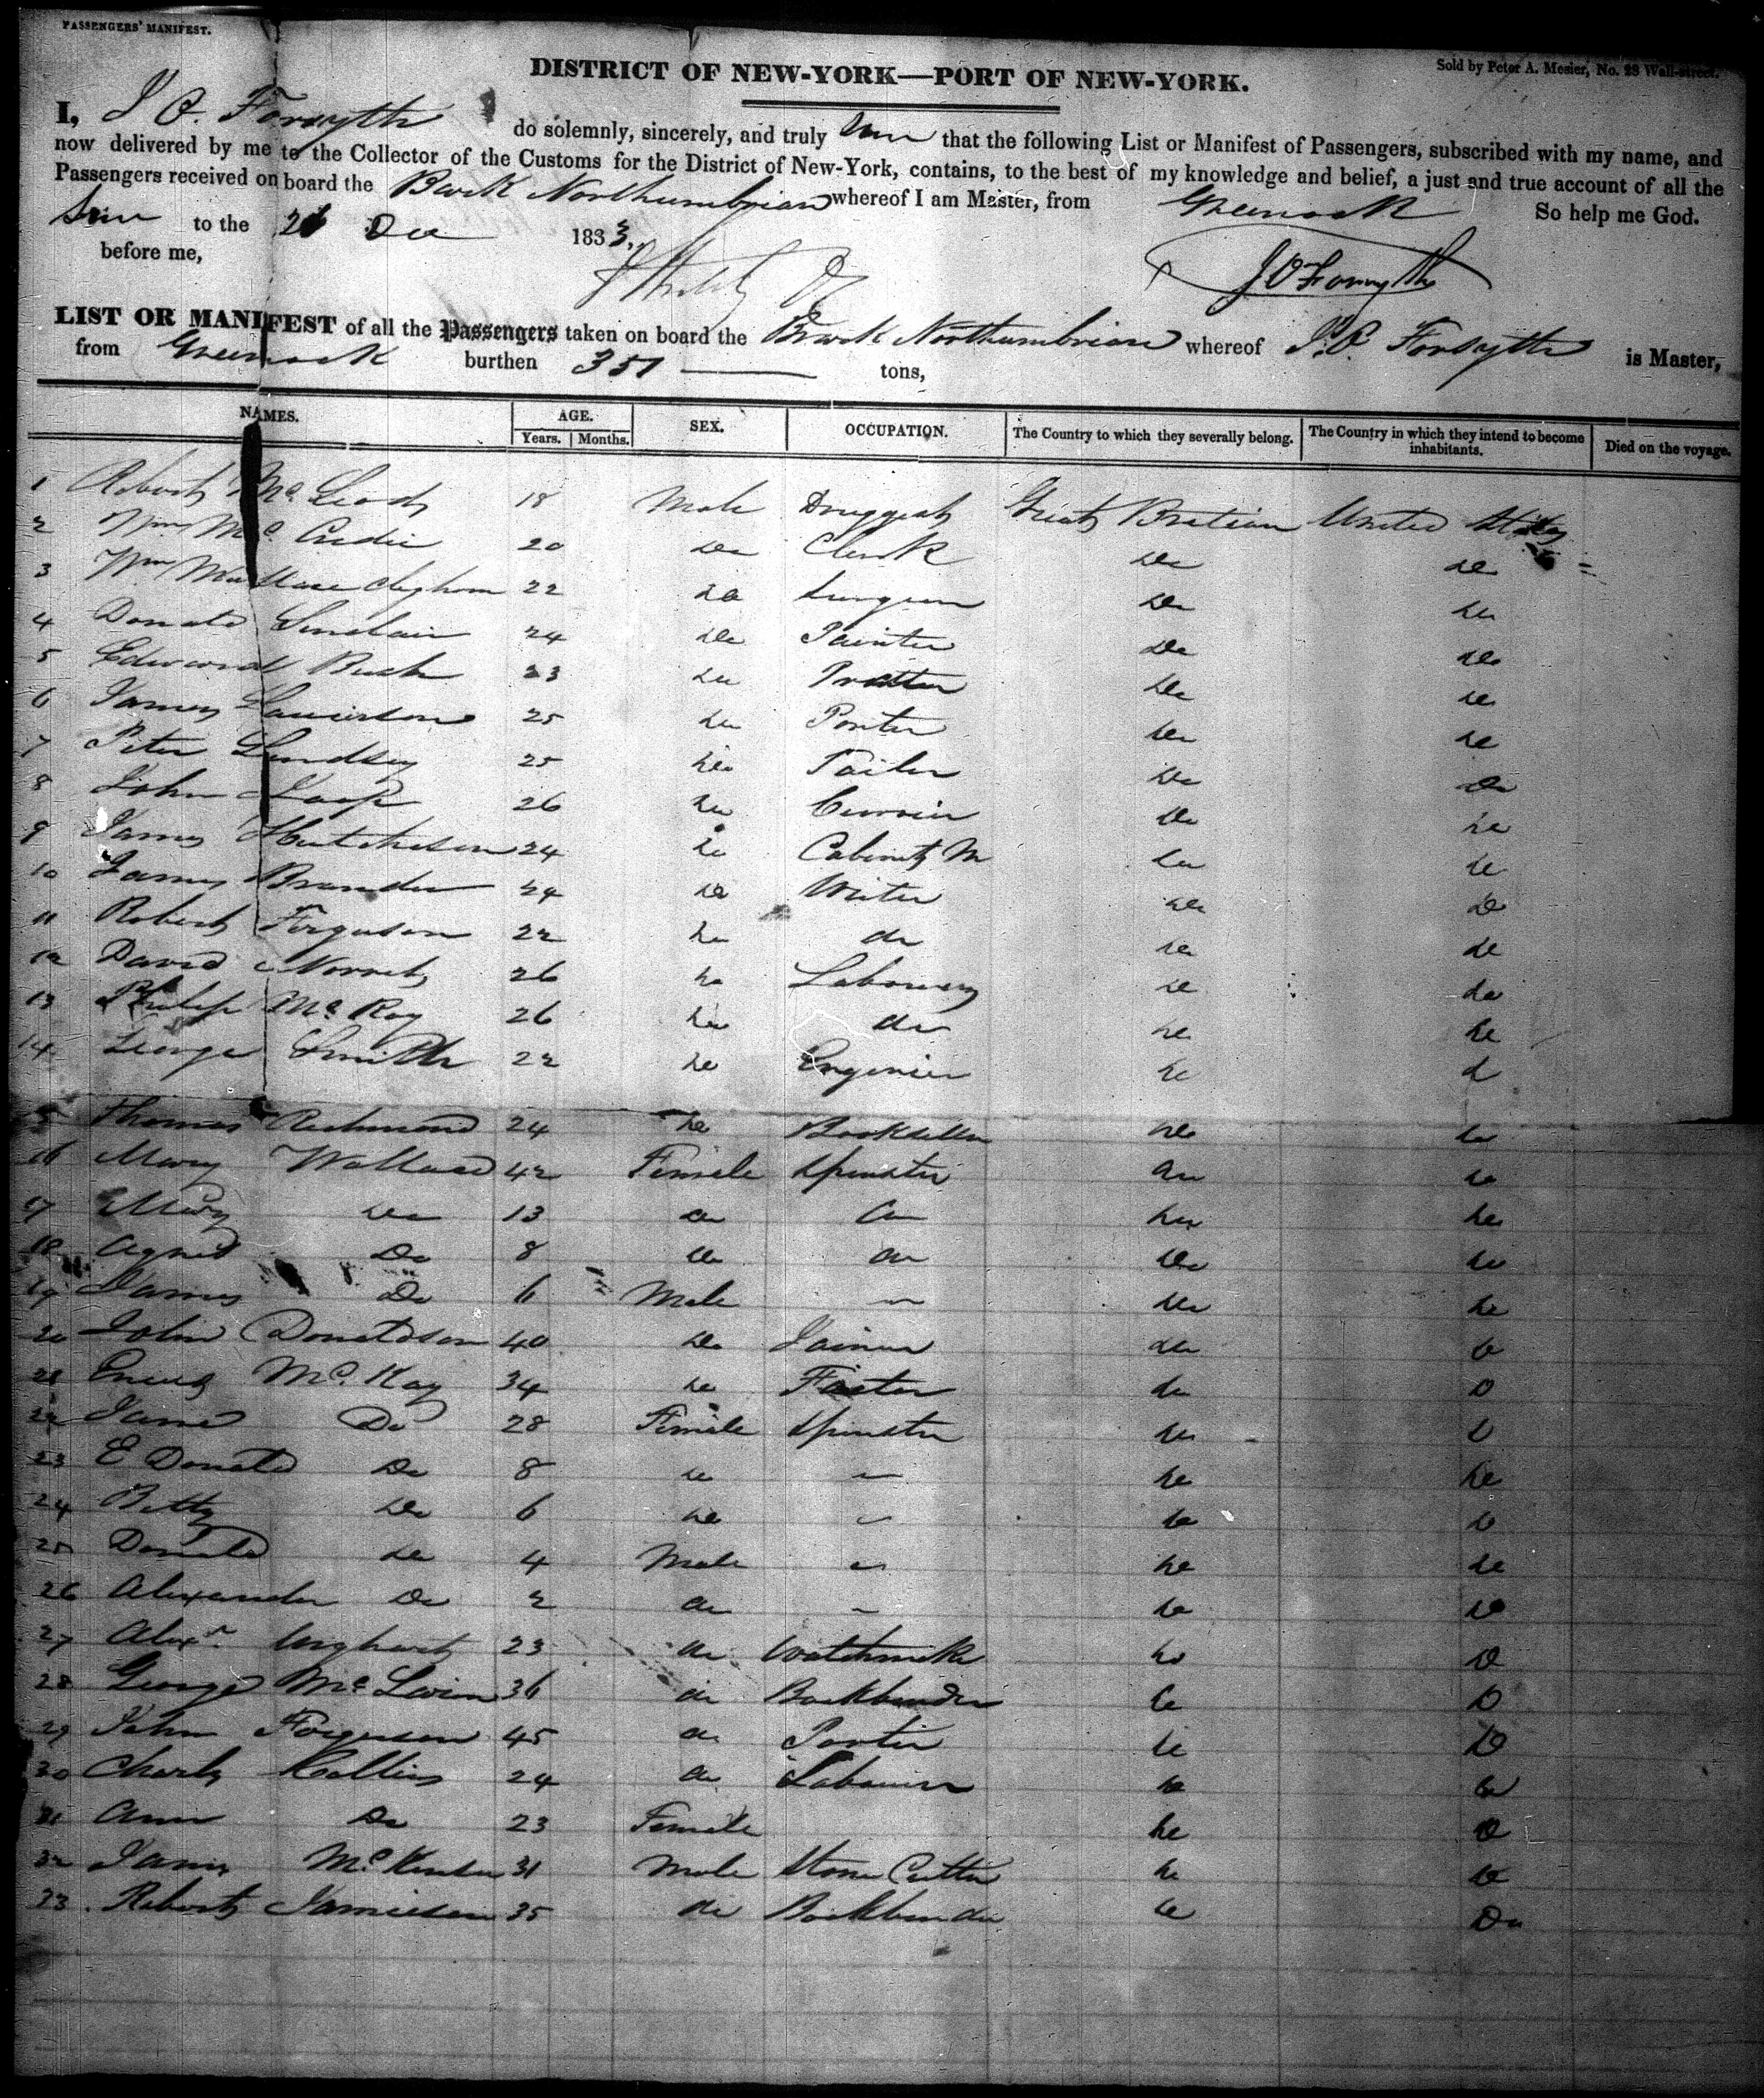 PASSENGERS' MANIFEST.
Sold by Peter A. Mesier, No. 28 Wall-street.
DISTRICT OF NEW-YORK—PORT OF NEW-YORK.
I, J O. Forsyth do solemnly, sincerely, and truly that the following List or Manifest of Passengers, subscribed with my name, and
now delivered by me to the Collector of the Customs for the District of New-York, contains, to the best of my knowledge and belief, a just and true account of all the
Passengers received on board the Bark Northumbrian whereof I am Master, from Greenock So help me God.
to the 26 Dec 1833,
before me,
J O Forsyth
LIST OR MANIFEST of all the Passengers taken on board the Bark Northumbrian whereof J. O. Forsyth is Master,
from Greenock burthen 351 tons,
NAMES. AGE. SEX. OCCUPATION. The Country to which they severally belong. The Country in which they intend to become inhabitants. Died on the voyage.
Years. Months.
1 Robert Mc Leod 18 Male Druggist Great Britian United States
2 Wm Mc 20 Do Clerk Do Do
3 Wm Wallace Cleghorn 22 Do Surgeon Do Do
4 Donald Sinclair 24 Do Painter Do Do
5 Edward Bush 23 Do Do Do
6 James 25 Do Porter Do Do
7 Peter Lindsey 25 Do Tailor Do Do
8 John 26 Do Currier Do Do
9 James Hutcheson 24 Do Cabinet M Do Do
10 James Brander 24 Do Writer Do Do
11 Robert Ferguson 22 Do do Do Do
12 David 26 Do Labourer Do Do
13 Philip Mc Roy 26 Do do Do Do
14 George Smith 22 Do Engenier Do D
15 Thomas Richmond 24 Do Bookseller Do Do
16 Mary Wallace 42 Female Spinster Do Do
17 Mary Do 13 do do Do Do
18 Agnes Do 8 do do Do Do
19 James Do 6 Male Do Do
20 John Donaldson 40 Do Joiner do D
21 Mc. Kay 34 Do do D
22 Jane Do 28 Female Spinster Do D
23 E Donald Do 8 do Do Do
24 Betty Do 6 Do Do D
25 Donald Do 4 Male Do Do
26 Alexander Do 2 do Do D
27 Alexr. 23 do Watchmak Do D
28 George Mc 36 do Bookbinder Do D
29 John Ferguson 45 do Porter Do D
30 Charles Collins 24 do Labourer Do D
31 Ann Do 23 Female Do D
32 James Mc. 31 Male Stone Cutter Do D
33 Robert Jamieson 35 do Bookbinder Do Do